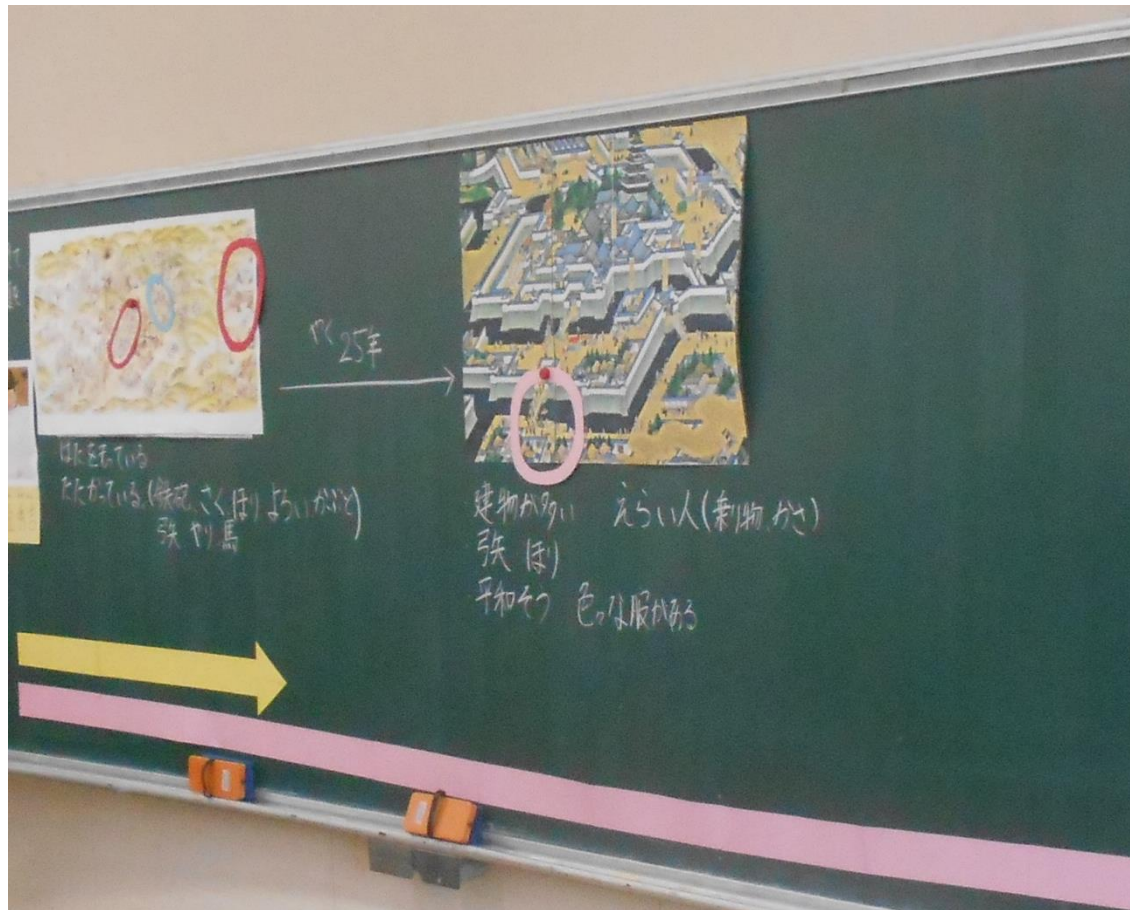 はたをもっている
たたかっている(鉄砲、さく、ほり よろい かぶと)
弓矢 やり 馬
やく25年
建物が多い えらい人(乗り物、かさ)
弓矢 ほり
平和そう 色々な服がある